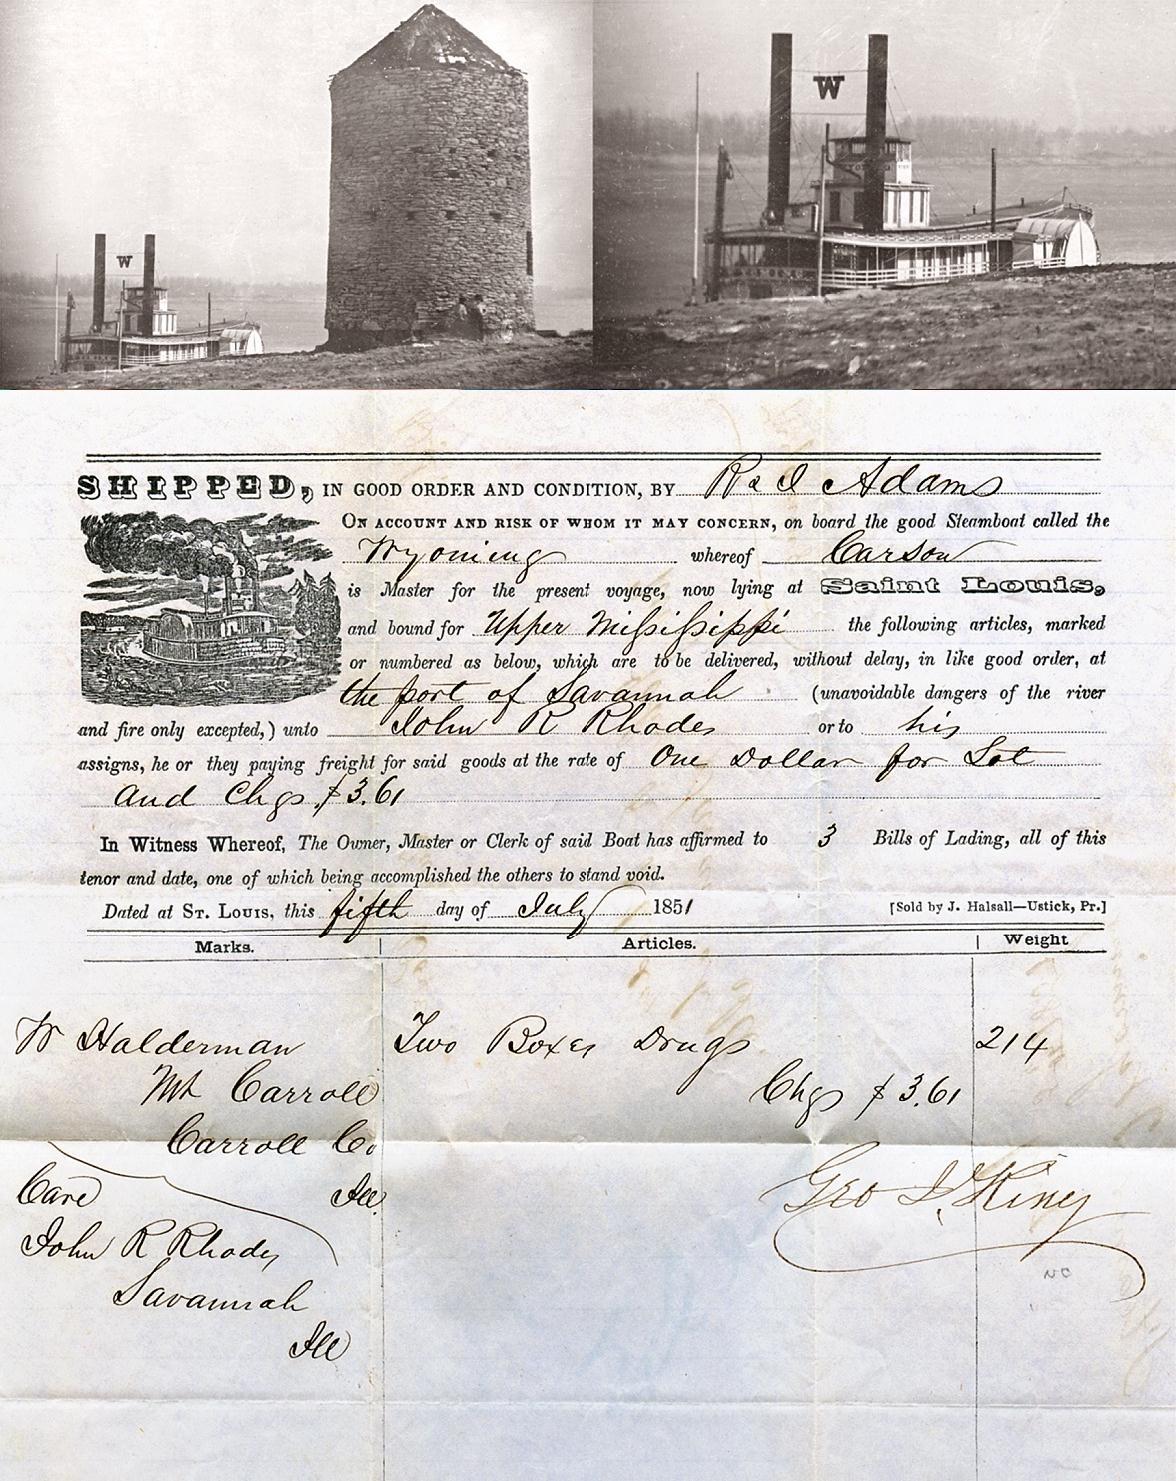 W
W
SHIPPED, IN GOOD ORDER AND CONDITION, BY R & I Adams
ON ACCOUNT AND RISK OF WHOM IT MAY CONCERN, on board the good Steamboat called the
Wyoming whereof Carson
is Master for the present voyage, now lying at Saint Louis,
and bound for Upper Mississippi the following articles, marked
or numbered as below, which are to be delivered, without delay, in like good order, at
the port of Savannah (unavoidable dangers of the river
and fire only excepted,) unto John R Rhodes or to his
assigns, he or they paying freight for said goods at the rate of One Dollar for Lot
and Chgs $3.61
In Witness Whereof, The Owner, Master or Clerk of said Boat has affirmed to 3 Bills of Lading, all of this
tenor and date, one of which being accomplished the others to stand void.
Dated at ST. LOUIS, this fifth day of July 1851 [Sold by J. Halsall—Ustick, Pr.]
Marks. Articles. Weight
W Halderman Two Boxes Drugs 214
Mt Carroll Chgs $3.61
Carroll Co
Ill
Care Geo I. King
John R Rhodes
Savannah
Ill
NC